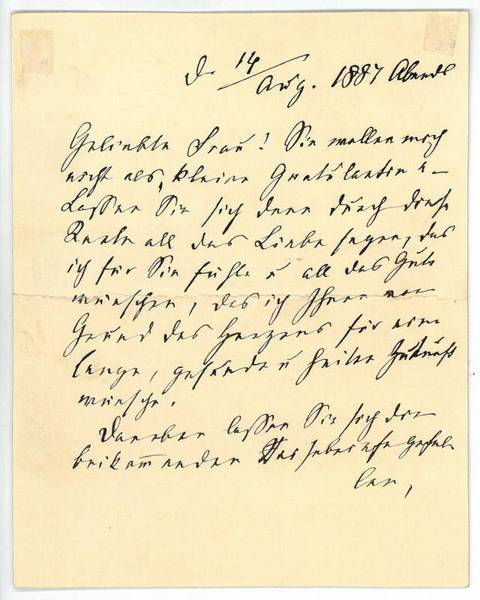 d. 14/Aug. 1887 Abends
Geliebte Frau! Sie wollen mich
nicht als kleine Gratulantin u
Lassen Sie sich denn durch diese
Karte all das Liebe sagen, das
ich für Sie fühle u all das Gute
wünschen, das ich Ihnen von
Grund des Herzens für eine
lange, gesunde u heitre Zukunft
wünsche.
Daneben lassen Sie sich den
beikommenden gefal
len,